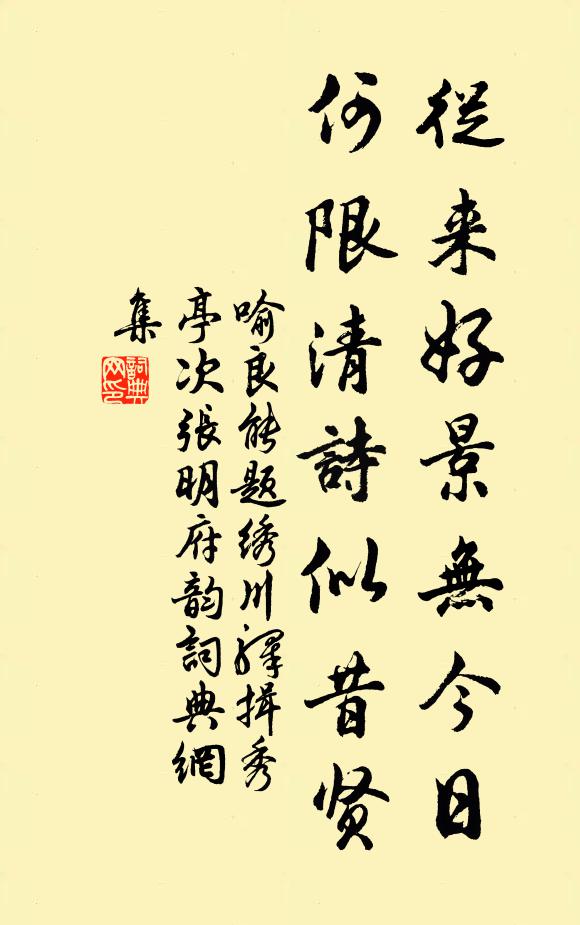 從来好景無今日
何限清詩似昔贤
喻良能题绣川驛揖秀
亭次張明府韵詞典網
集
詞典網印